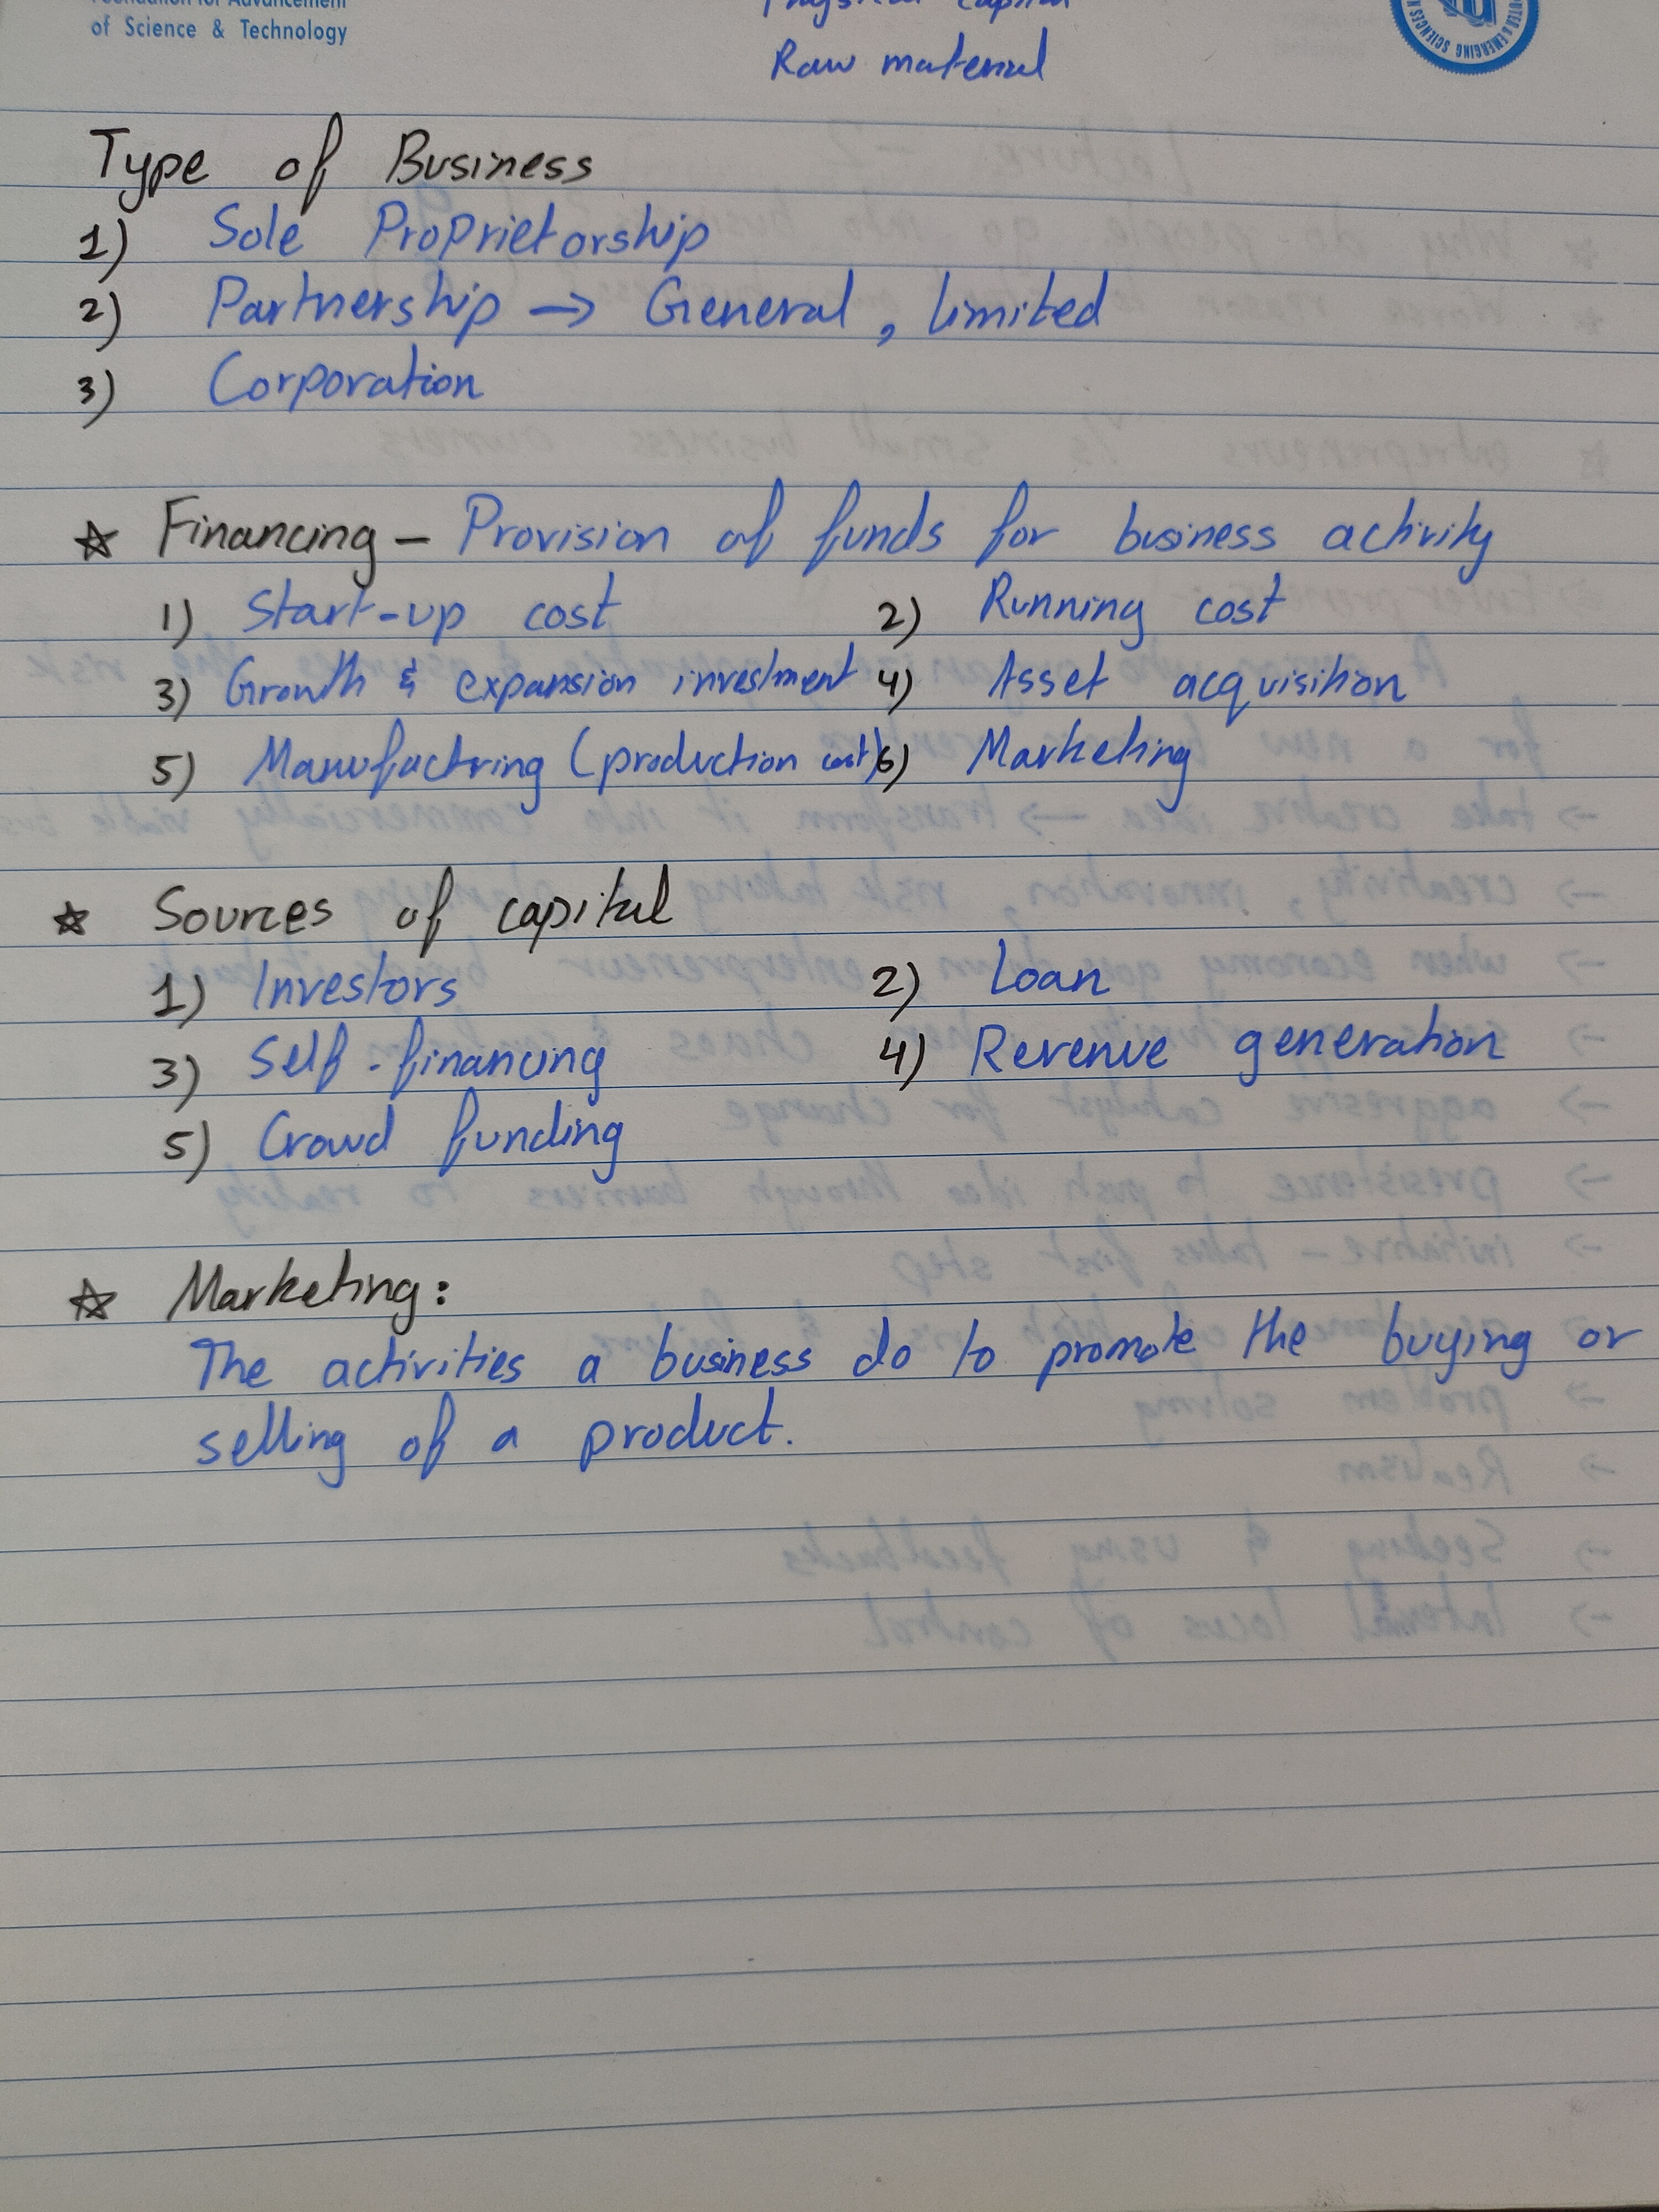 of Science & Technology
Raw material
Type of Business
1) Sole Proprietorship
2) Partnership → General, limited
3) Corporation
☆ Financing – Provision of funds for business activity
1) Start-up cost 2) Running cost
3) Growth & expansion investment 4) Asset acquisition
5) Manufactring (production cost) 6) Marketing
☆ Sources of capital
1) Investors 2) Loan
3) Self-financing 4) Revenue generation
5) Crowd funding
☆ Marketing:
The activities a business do to promote the buying or
selling of a product.